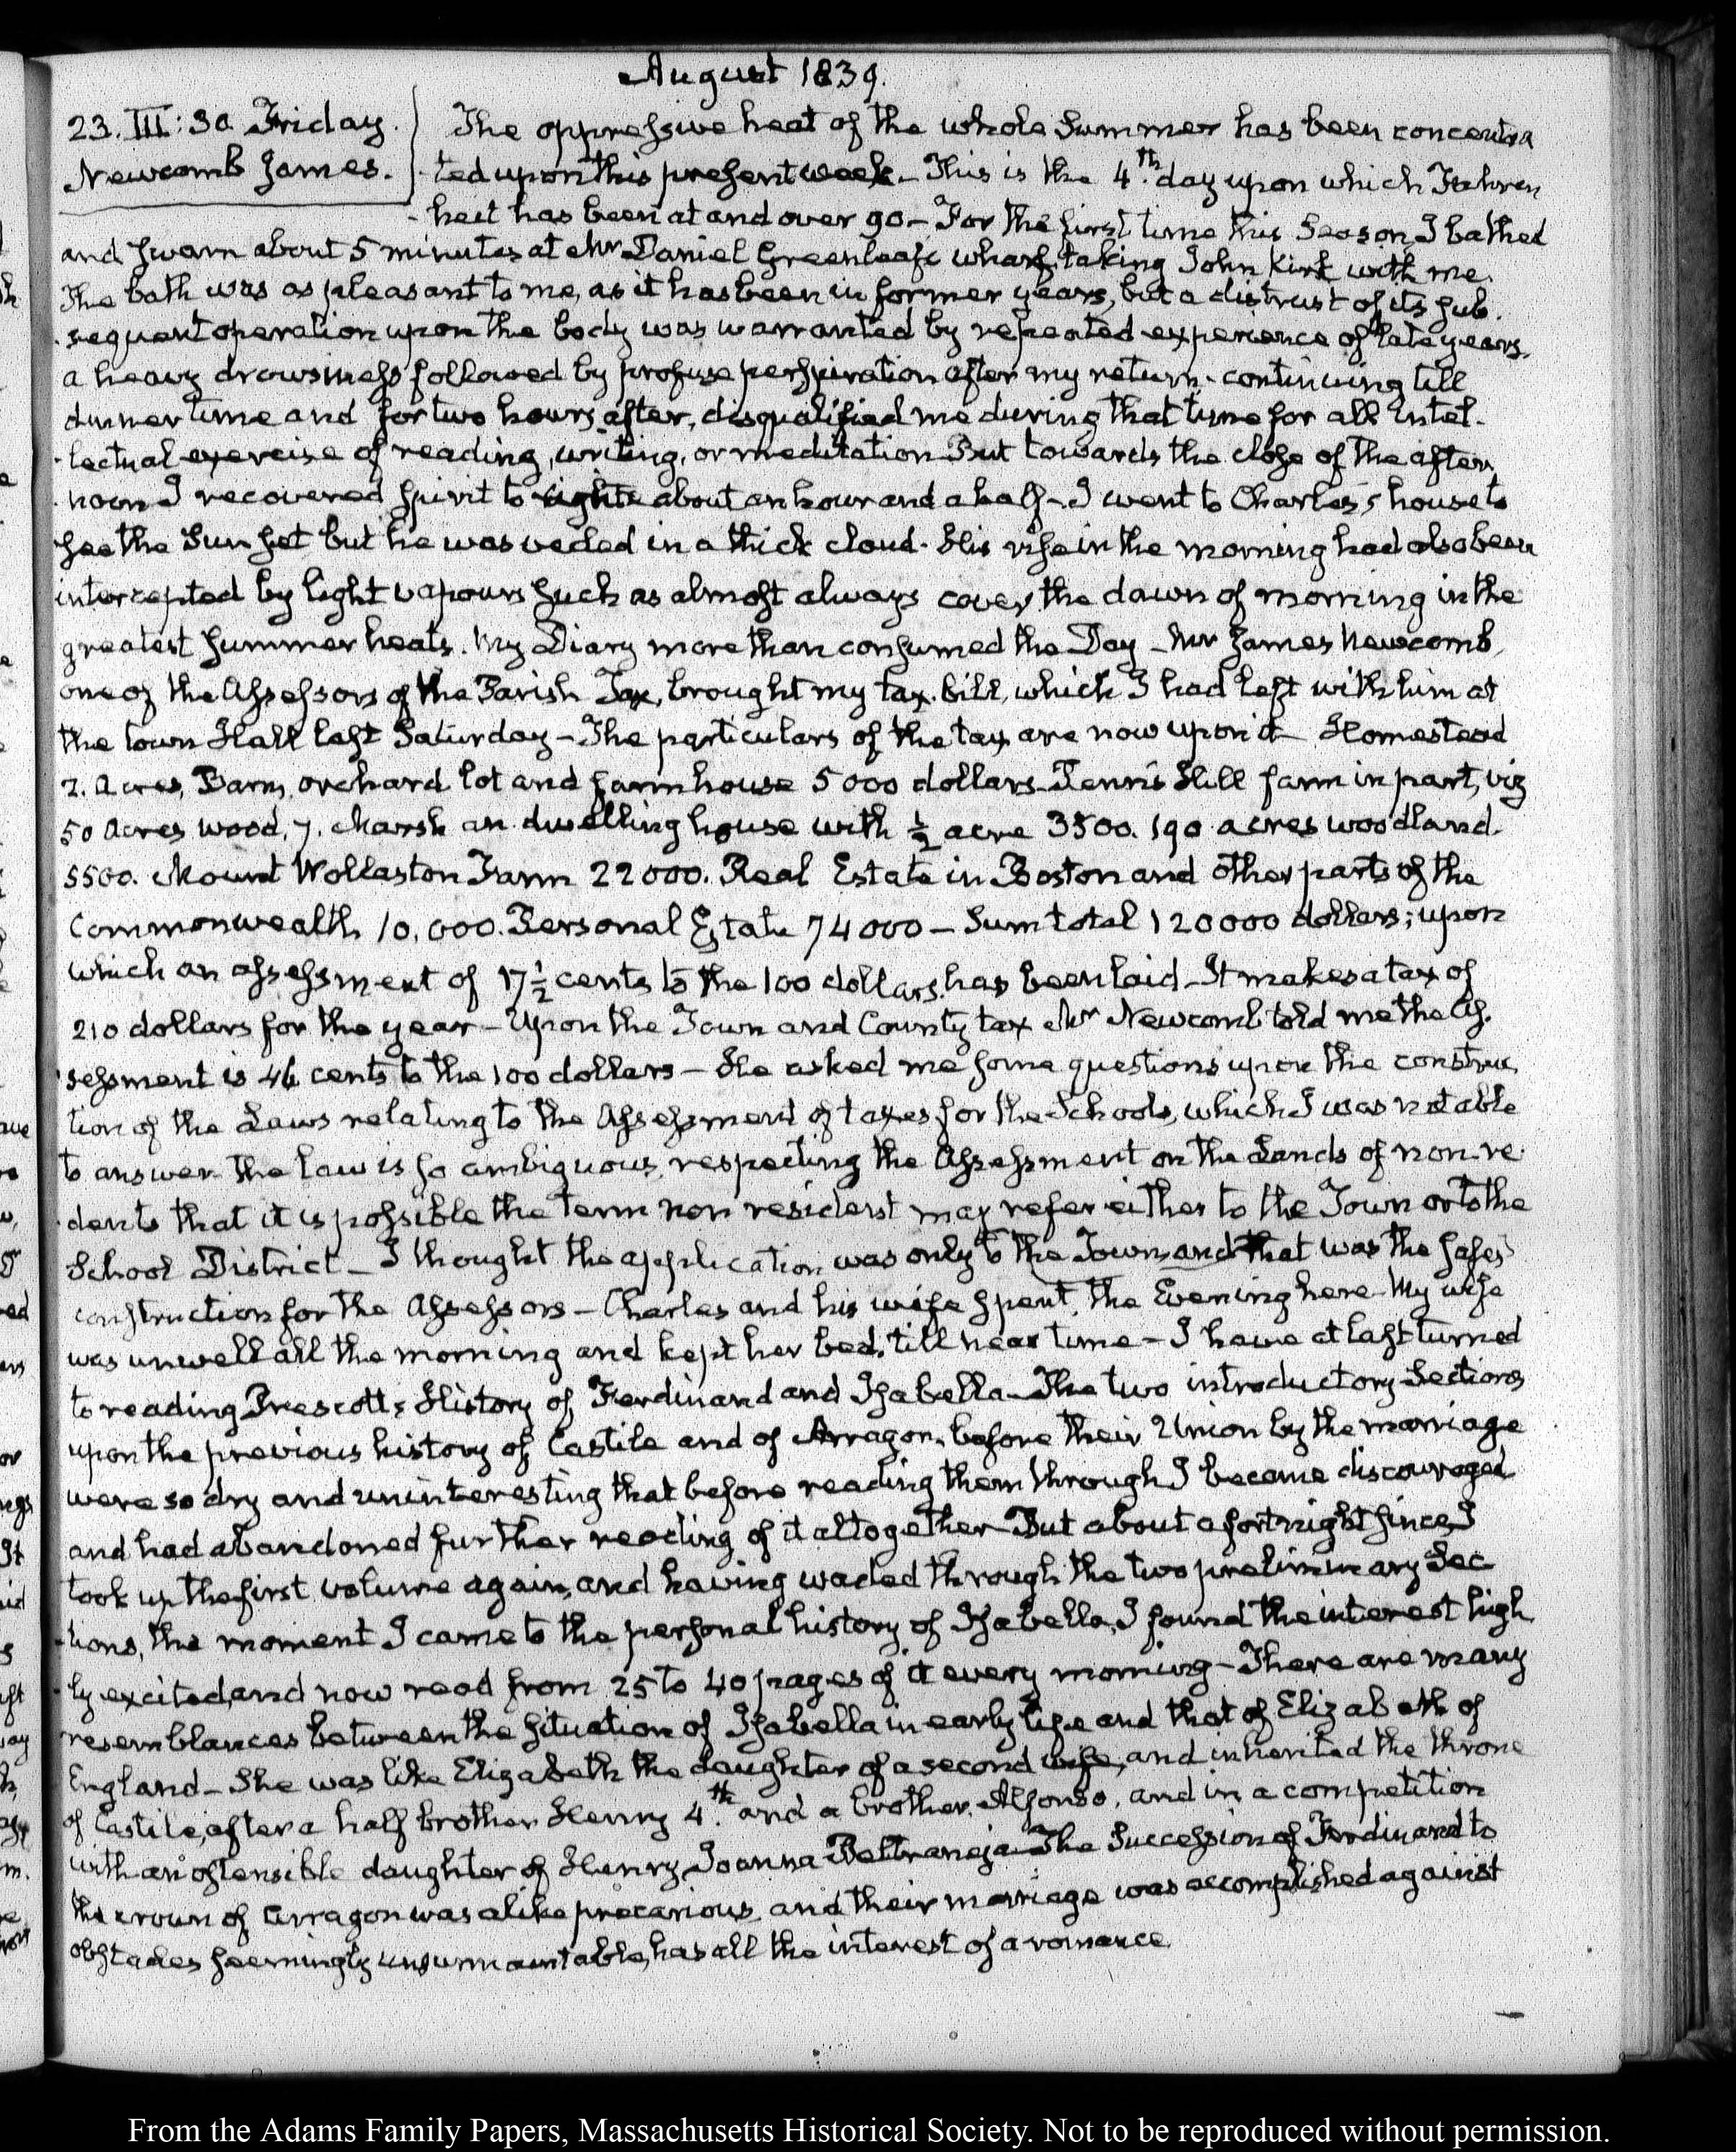 August 1839.
23. III:30. Friday.
Newcomb James.
The oppressive heat of the whole Summer has been concentra
ted upon this present week. This is the 4.th day upon which Fahren
heit has been at and over 90 – For the first time this Season I bathed
and swam about 5 minutes at Mr Daniel Greenleaf's wharf, taking John Kirk with me.
The bath was as pleasant to me, as it has been in former years, but a distrust of its sub-
sequent operation upon the body was warranted by repeated experience of late years.
a heavy drowsiness followed by profuse perspiration after my return – continuing till
dinner time and for two hours after, disqualified me during that time for all Intel-
lectual exercise of reading, writing, or meditation But towards the close of the after
noon I recovered spirit to write about an hour and a half – I went to Charles's house to
see the Sun set but he was veiled in a thick cloud. His rise in the morning had also been
intercepted by light vapours such as almost always cover the dawn of morning in the
greatest summer heats. My Diary more than consumed the Day – Mr James Newcomb,
one of the Assessors of the Parish Tax, brought my tax-bill, which I had left with him at
the town Hall last Saturday – The particulars of the tax are now upon it – Homestead
7. Acres, Barn, orchard lot and farm house 5000 dollars. Penn's Hill farm in part, viz
50 Acres wood, 7. Marsh an dwelling house with ½ acre 3500. 190 acres woodland.
5500. Mount Wollaston Farm 22000. Real Estate in Boston and other parts of the
Commonwealth 10,000. Personal Estate 74000 – Sum total 120000 dollars; upon
which an assessment of 17½ cents to the 100 dollars. has been laid – It makes a tax of
210 dollars for the year – Upon the Town and County tax Mr Newcomb told me the As-
sessment is 46 cents to the 100 dollars – He asked me some questions upon the construc
tion of the Laws relating to the Assessment of taxes for the Schools, which I was not able
to answer – the law is so ambiguous, respecting the Assessment on the Lands of non-re
dents that it is possible the term non resident may refer either to the Town or to the
School District – I thought the application was only to the Town and that was the safest
construction for the Assessors – Charles and his wife spent the Evening here – My wife
was unwell all the morning and kept her bed, till near time – I have at last turned
to reading Prescott's History of Ferdinand and Isabella – The two introductory Sections
upon the previous history of Castile and of Arragon, before their Union by the marriage
were so dry and uninteresting that before reading them through I became discouraged
and had abandoned further reading of it altogether – But about a fortnight since, I
took up the first volume again, and having waded through the two preliminary Sec
tions, the moment I came to the personal history of Isabella, I found the interest high
ly excited, and now read from 25 to 40 pages of it every morning – There are many
resemblances between the situation of Isabella in early life and that of Elizabeth of
England – She was like Elizabeth the daughter of a second wife, and inherited the throne
of Castile, after a half brother Henry 4.th and a brother, Alfonso, and in a competition
with an ostensible daughter of Henry, Joanna Beltraneja – The Succession of Ferdinand to
the crown of Arragon was alike precarious and their marriage was accomplished against
obstacles seemingly unsurmountable, has all the interest of a romance.
From the Adams Family Papers, Massachusetts Historical Society. Not to be reproduced without permission.